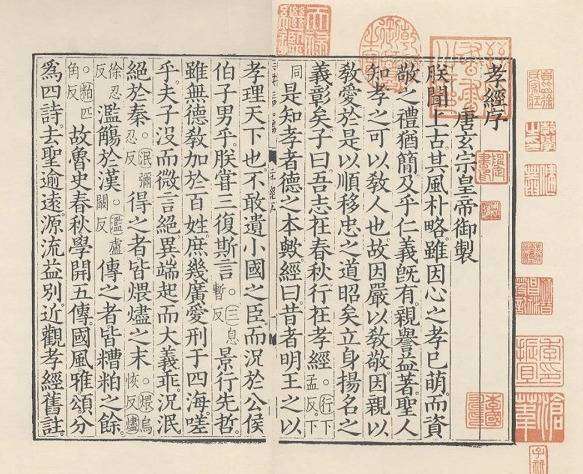 孝經序
唐玄宗皇帝御製
朕聞上古其風朴略雖因心之孝已萌而資
敬之禮猶簡及乎仁義旣有親譽益著聖人
知孝之可以敎人也故因嚴以敎敬因親以
敎愛於是以順移忠之道昭矣立身揚名之
義彰矣子曰吾志在春秋行在孝經行下孟反下
同是知孝者德之本歟經曰昔者明王之以
孝理天下也不敢遺小國之臣而況於公侯
伯子男乎朕嘗三復斯言三息暫反景行先哲
雖無德敎加於百姓庶幾廣愛刑于四海嗟
乎夫子沒而微言絕異端起而大義乖況泯
絕於秦泯彌忍反得之者皆煨燼之末煨烏恢反燼
徐忍反濫觴於漢濫盧闞反傳之者皆糟粕之餘
粕匹角反故魯史春秋學開五傳國風雅頌分
爲四詩去聖逾遠源流益別近觀孝經舊註